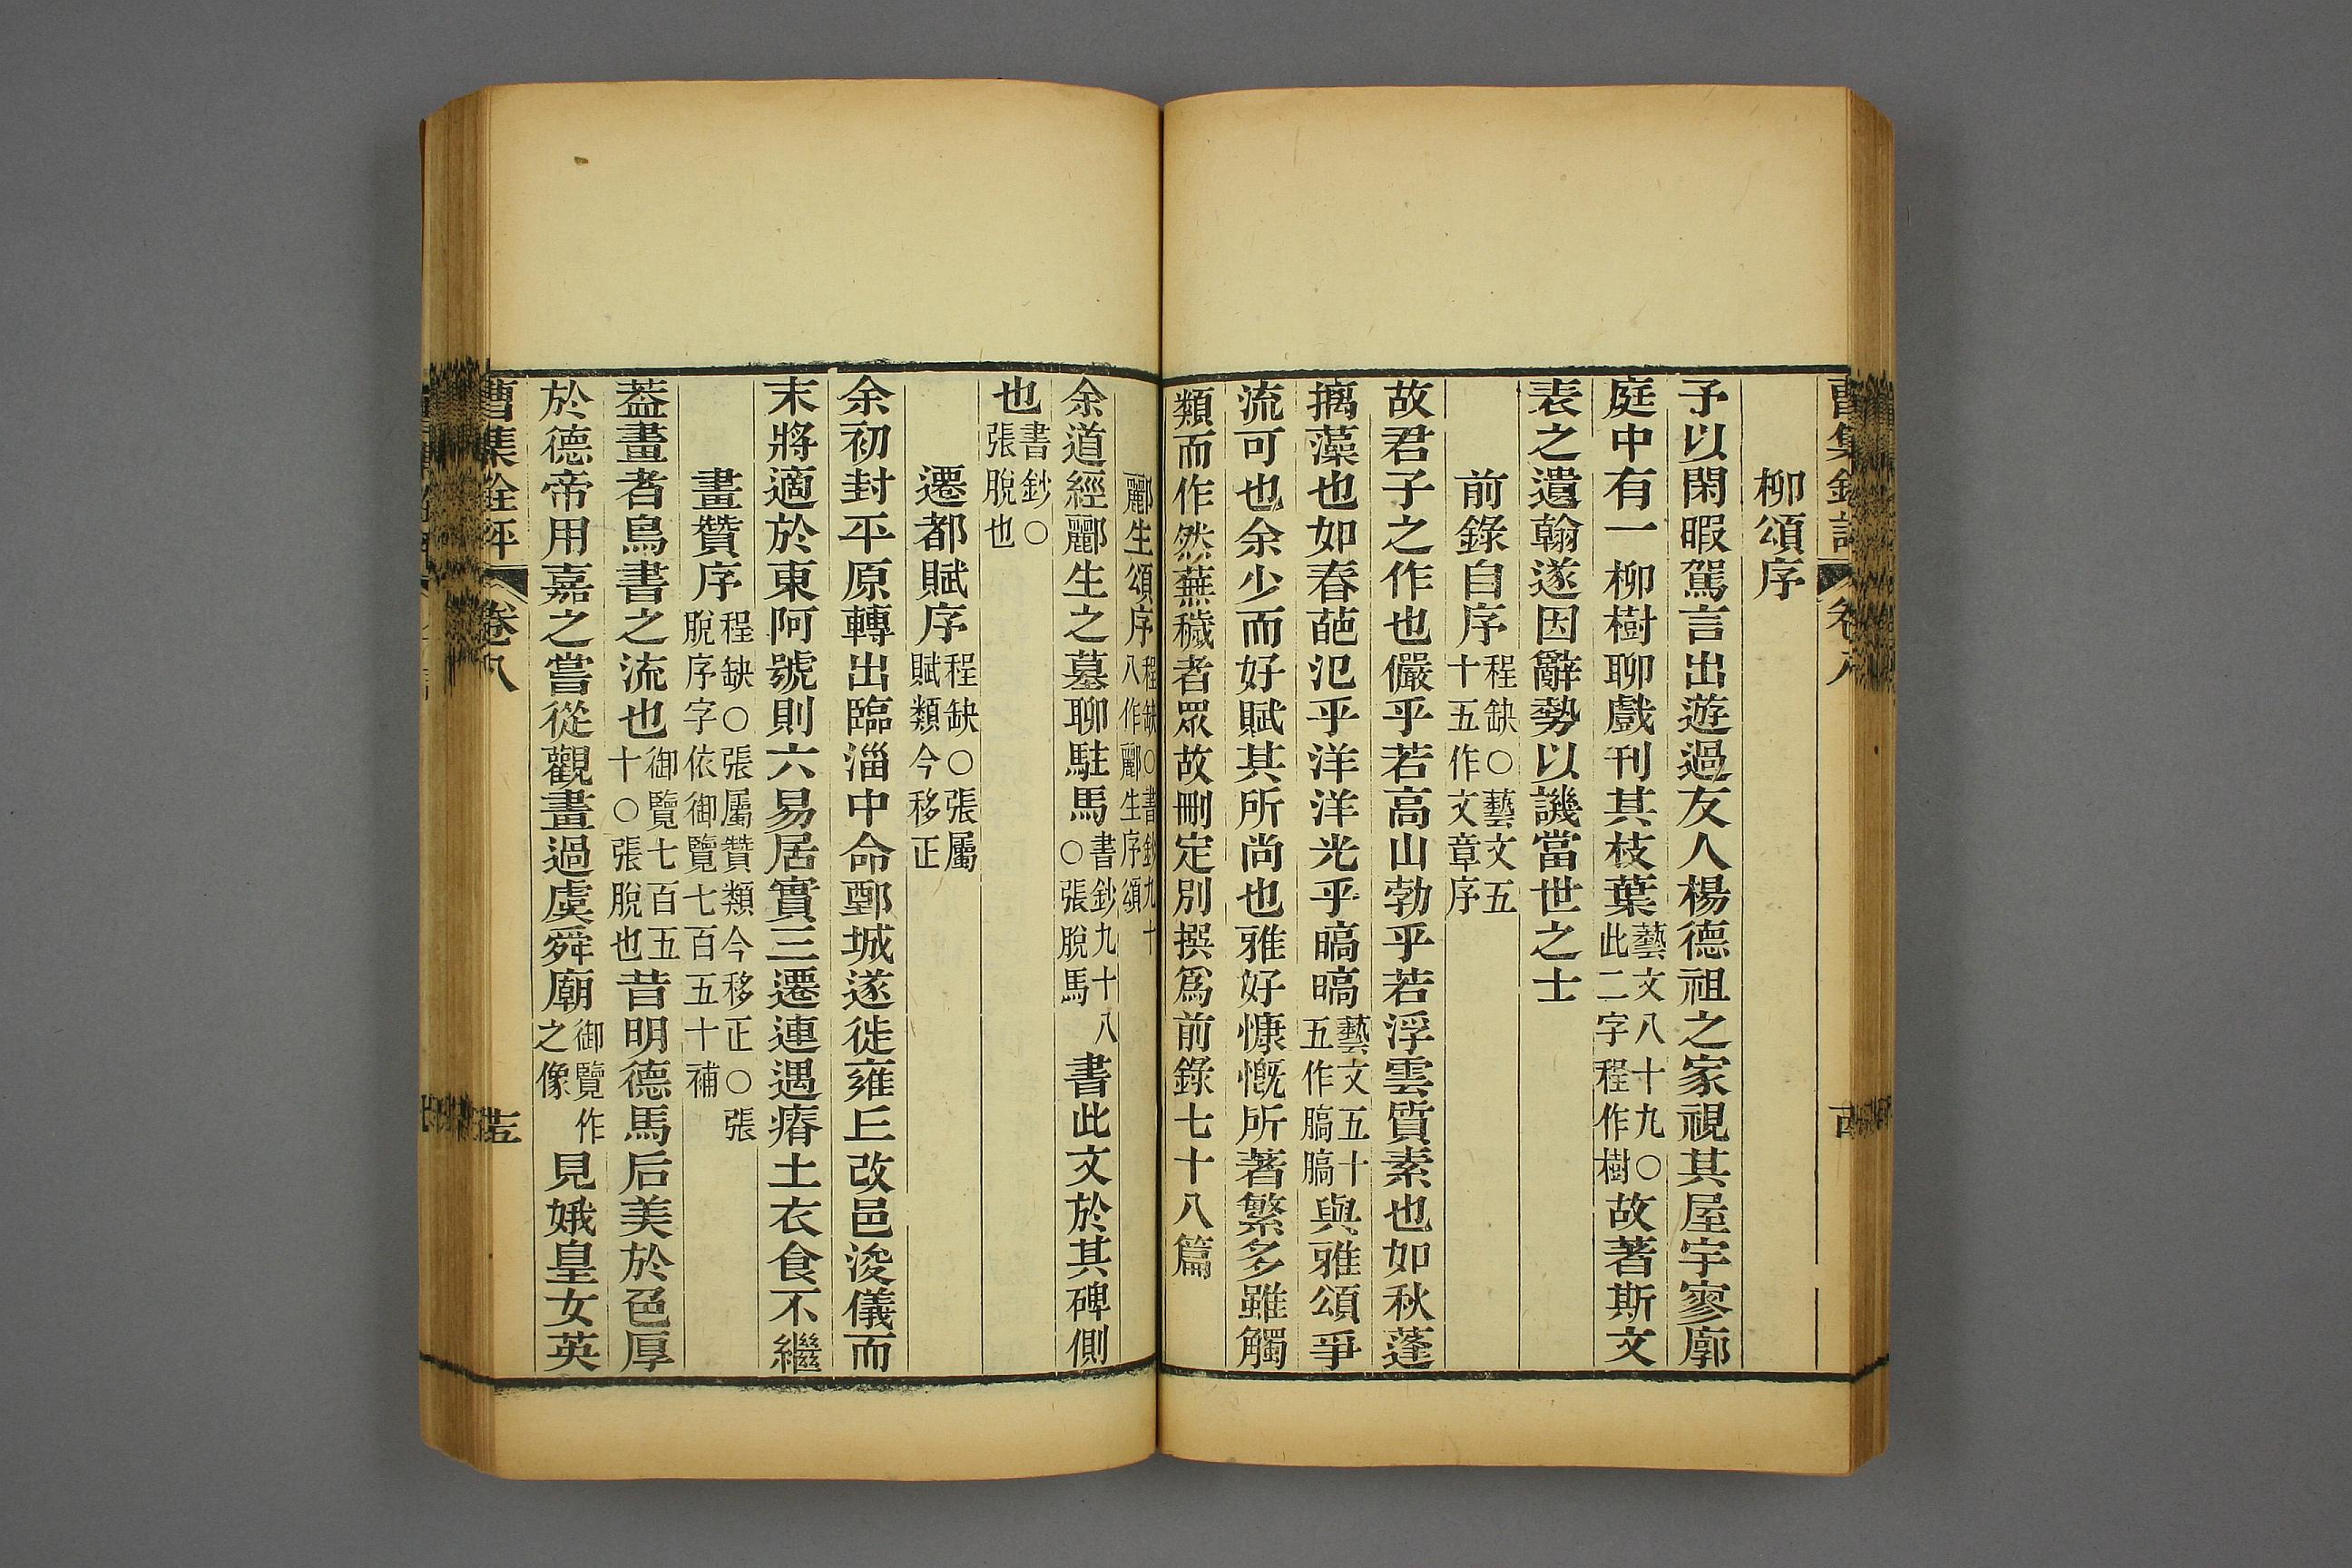 柳頌序
予以閑暇駕言出遊過友人楊德祖之家視其屋宇寥廓
庭中有一柳樹聊戲刊其枝葉藝文八十九○此二字程作樹故著斯文
表之遺翰遂因辭勢以譏當世之士
前錄自序程缺○藝文五十五作文章序
故君子之作也儼乎若高山勃乎若浮雲質素也如秋蓬
摛藻也如春葩氾乎洋洋光乎皜皜藝文五十五作膈膈與雅頌爭
流可也余少而好賦其所尚也雅好慷慨所著繁多雖觸
類而作然蕪穢者眾故刪定別撰爲前錄七十八篇
酈生頌序程缺○書鈔九十八作酈生序頌
余道經酈生之墓聊駐馬書鈔九十八○張脫馬書此文於其碑側
也書鈔○張脫也
遷都賦序程缺○張屬賦類今移正
余初封平原轉出臨淄中命鄄城遂徙雍丘改邑浚儀而
末將適於東阿號則六易居實三遷連遇瘠土衣食不繼
畫贊序程缺○張屬贊類今移正○張脫序字依御覽七百五十補
葢畫者鳥書之流也御覽七百五十○張脫也昔明德馬后美於色厚
於德帝用嘉之嘗從觀畫過虞舜廟御覽作之像見娥皇女英
曹集銓評 卷八 十五